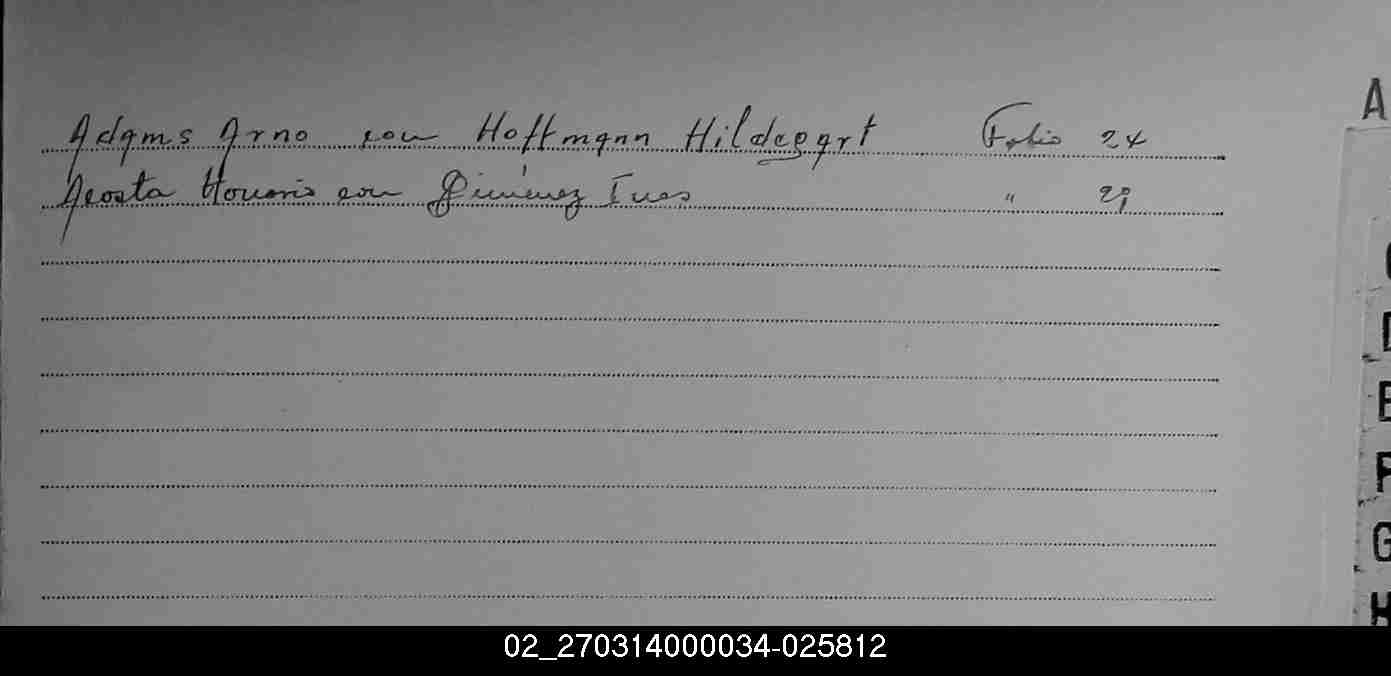 Adams Arno con Hoffmann Hildegart Folio 24
Acosta con Gimenez Ines " 29
A
D
E
F
G
H
02_270314000034-025812